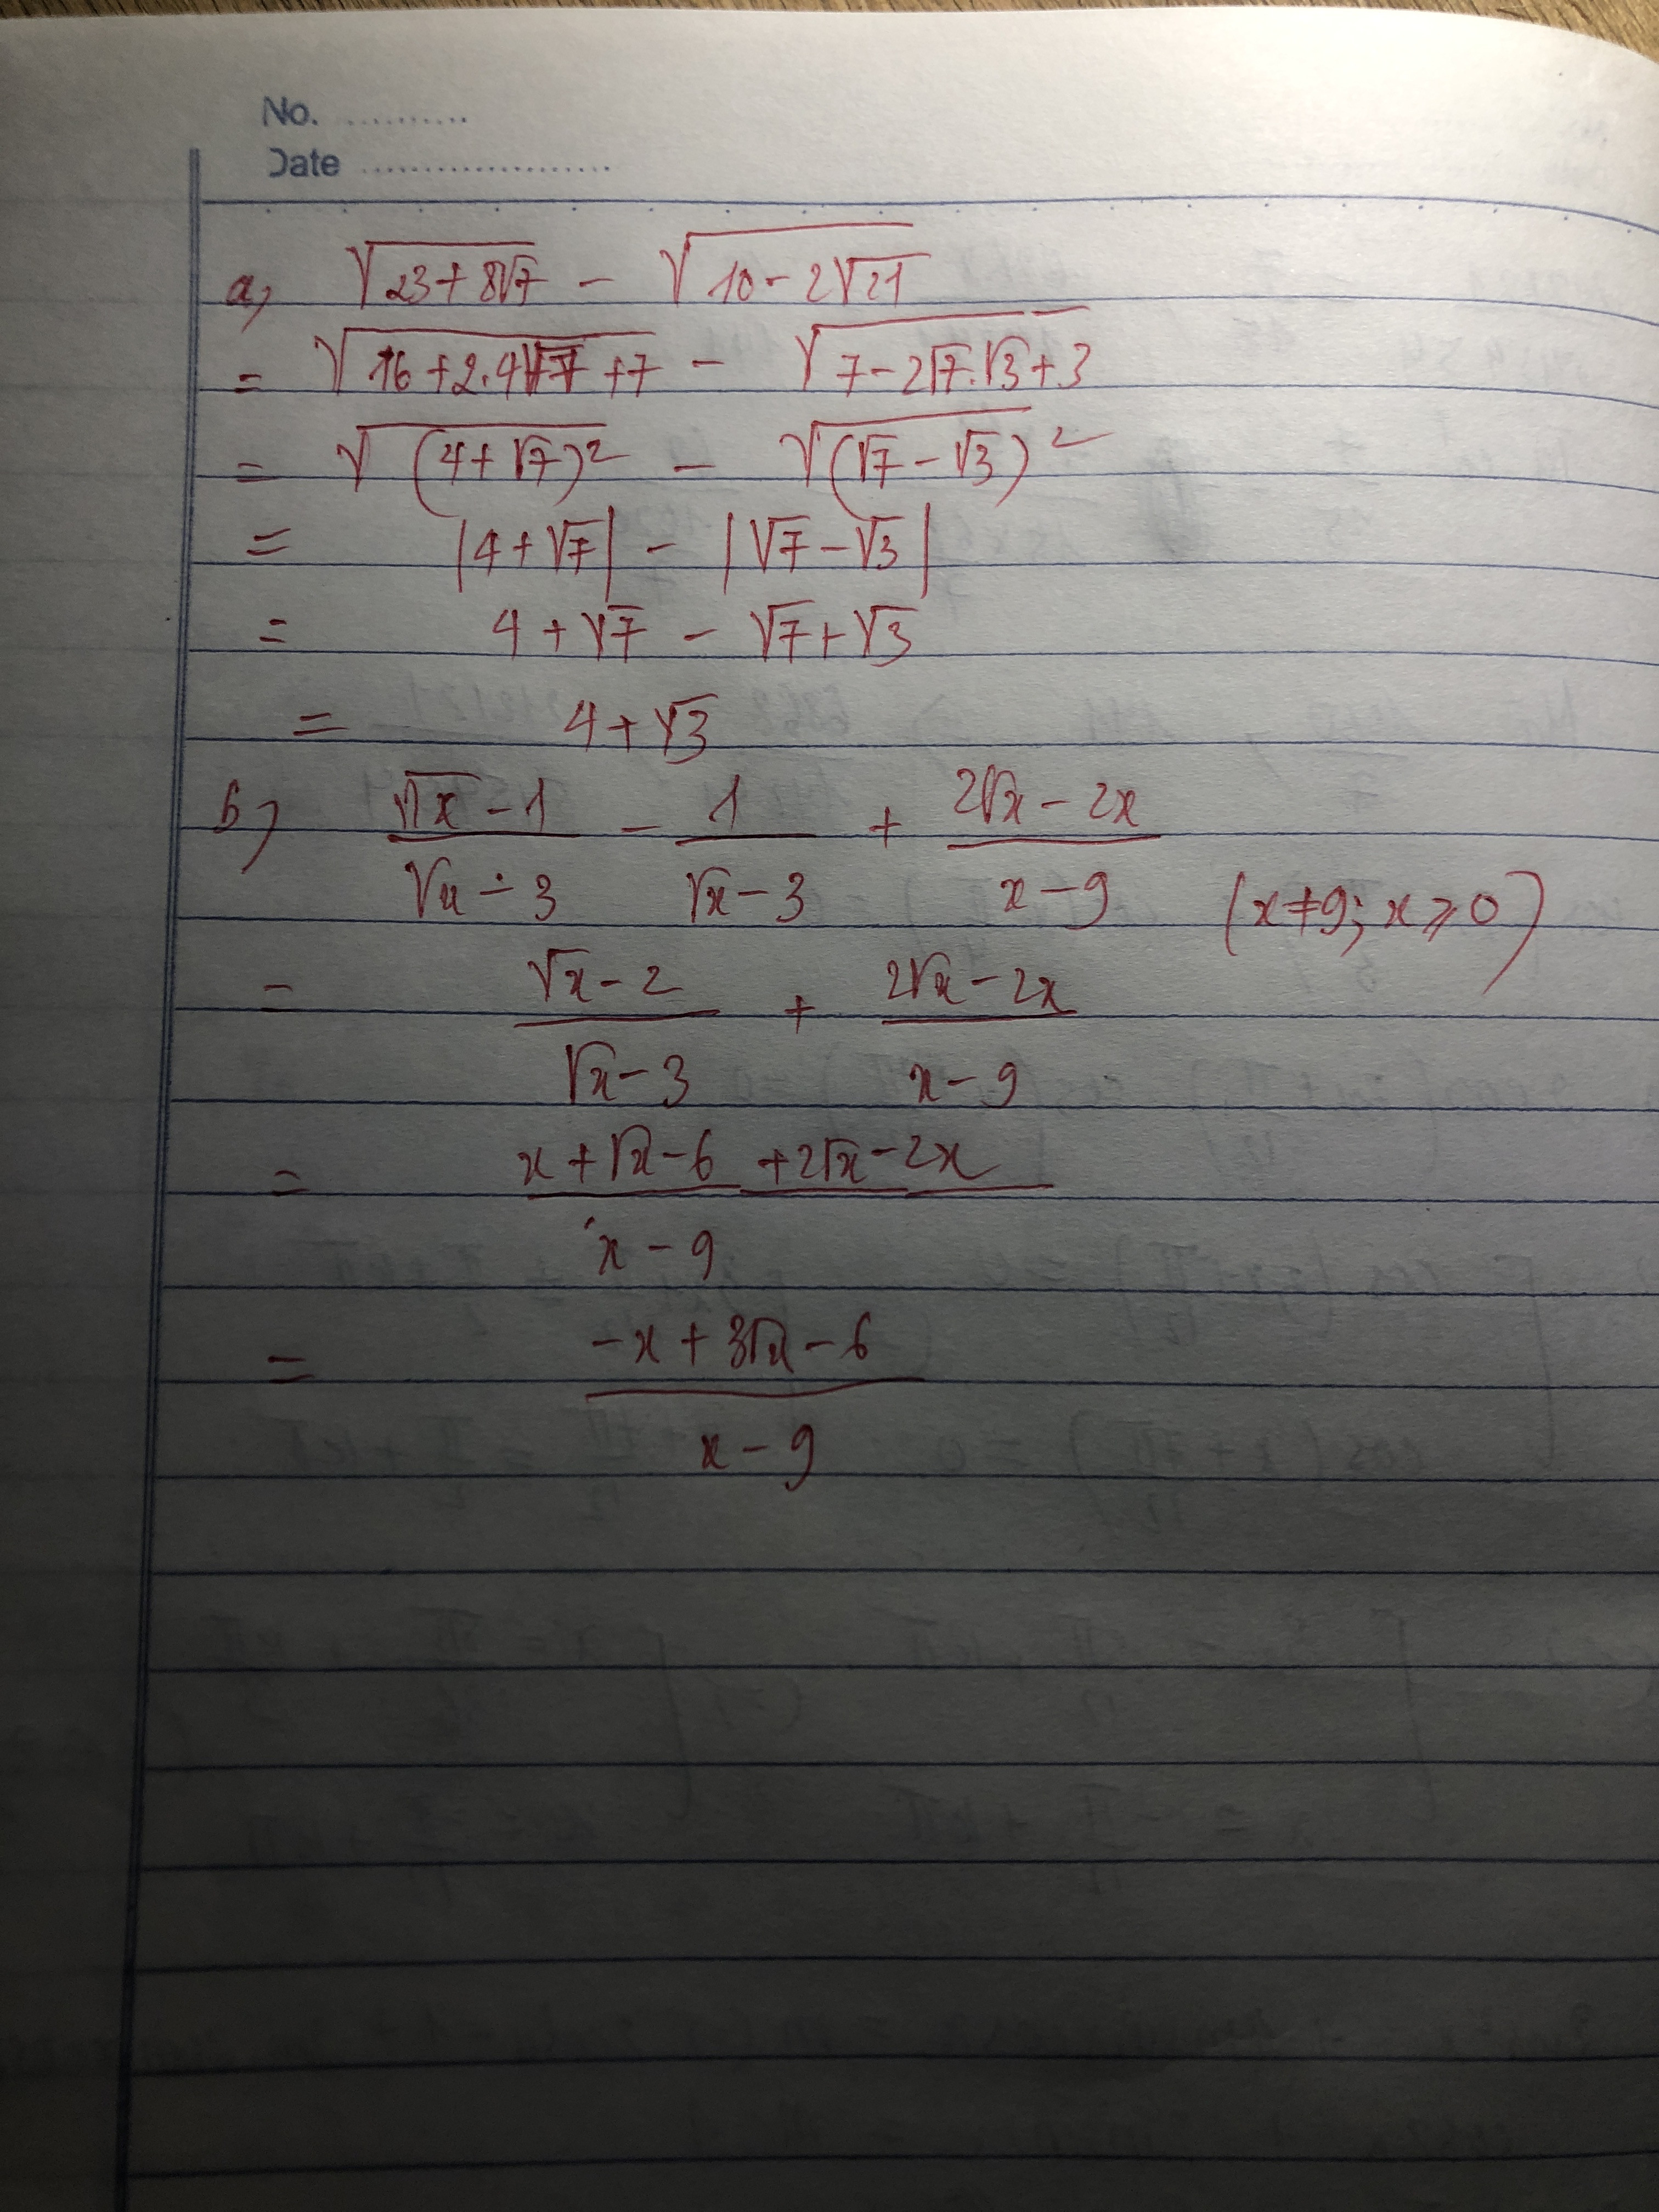 No. ..........
Date ....................
a) √(23+8√7) - √(10-2√21)
= √(16+2.4√7+7) - √(7-2√7.√3+3)
= √((4+√7)²) - √((√7-√3)²)
= |4+√7| - |√7-√3|
= 4+√7 - √7+√3
= 4+√3
b) (√x-1)/(√x-3) - 1/(√x-3) + (2√x-2x)/(x-9) (x≠9; x⩾0)
= (√x-2)/(√x-3) + (2√x-2x)/(x-9)
= (x+√x-6+2√x-2x)/(x-9)
= (-x+3√x-6)/(x-9)